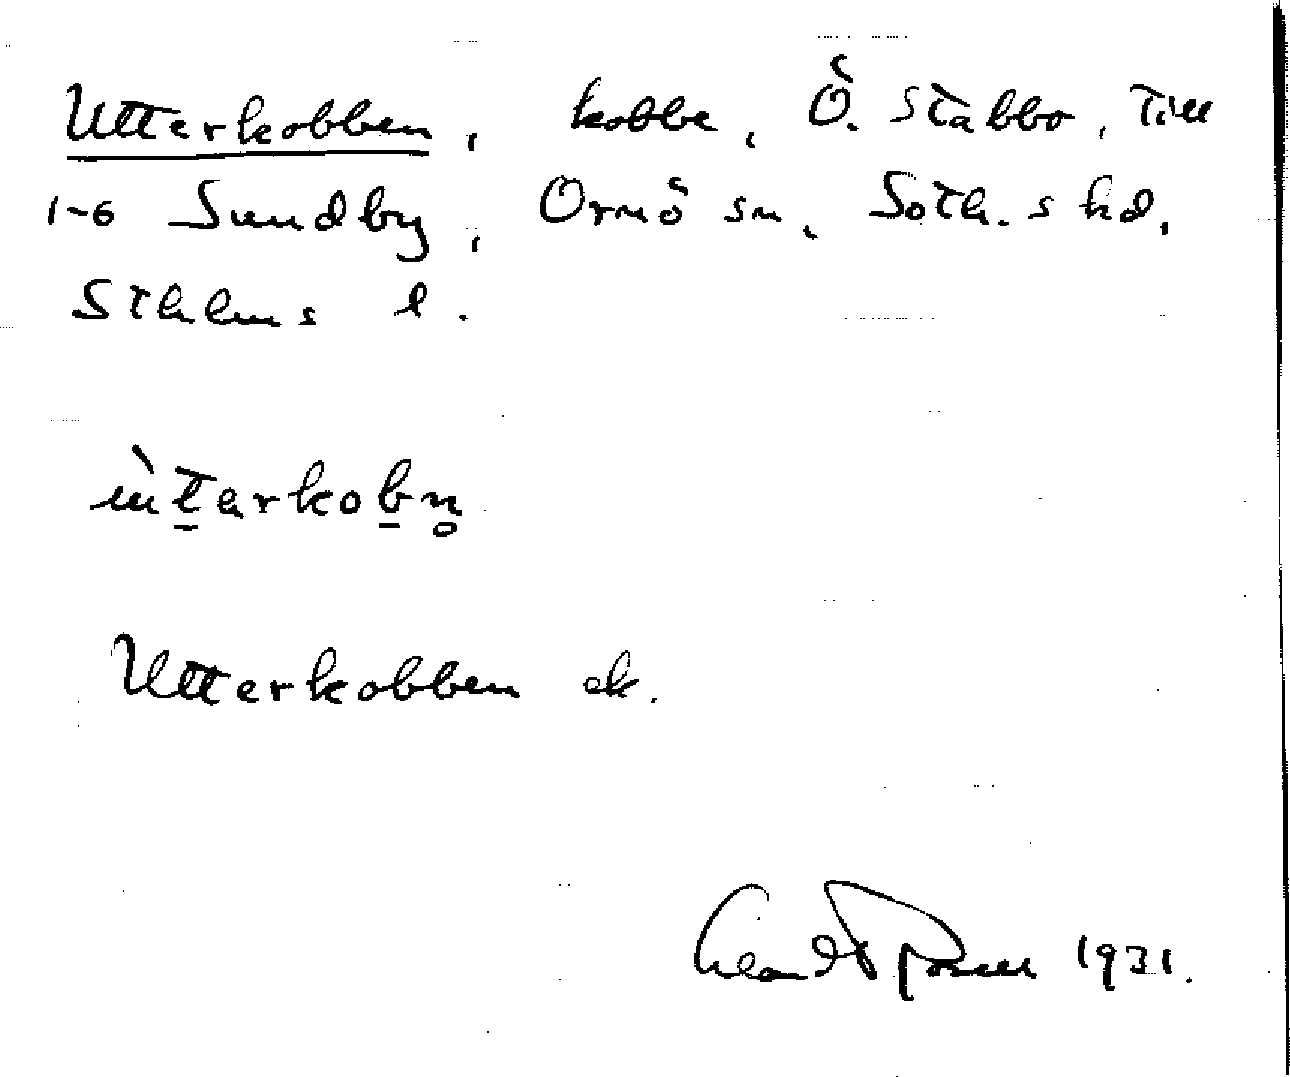 Utterkobben, kobbe, Ö. Stabbo, till
1-6 Sundby, Ornö sn, Soth. s hd.
Sthlms l.
ùt̲ərkob̲n̥
Utterkobben ek.
1931.